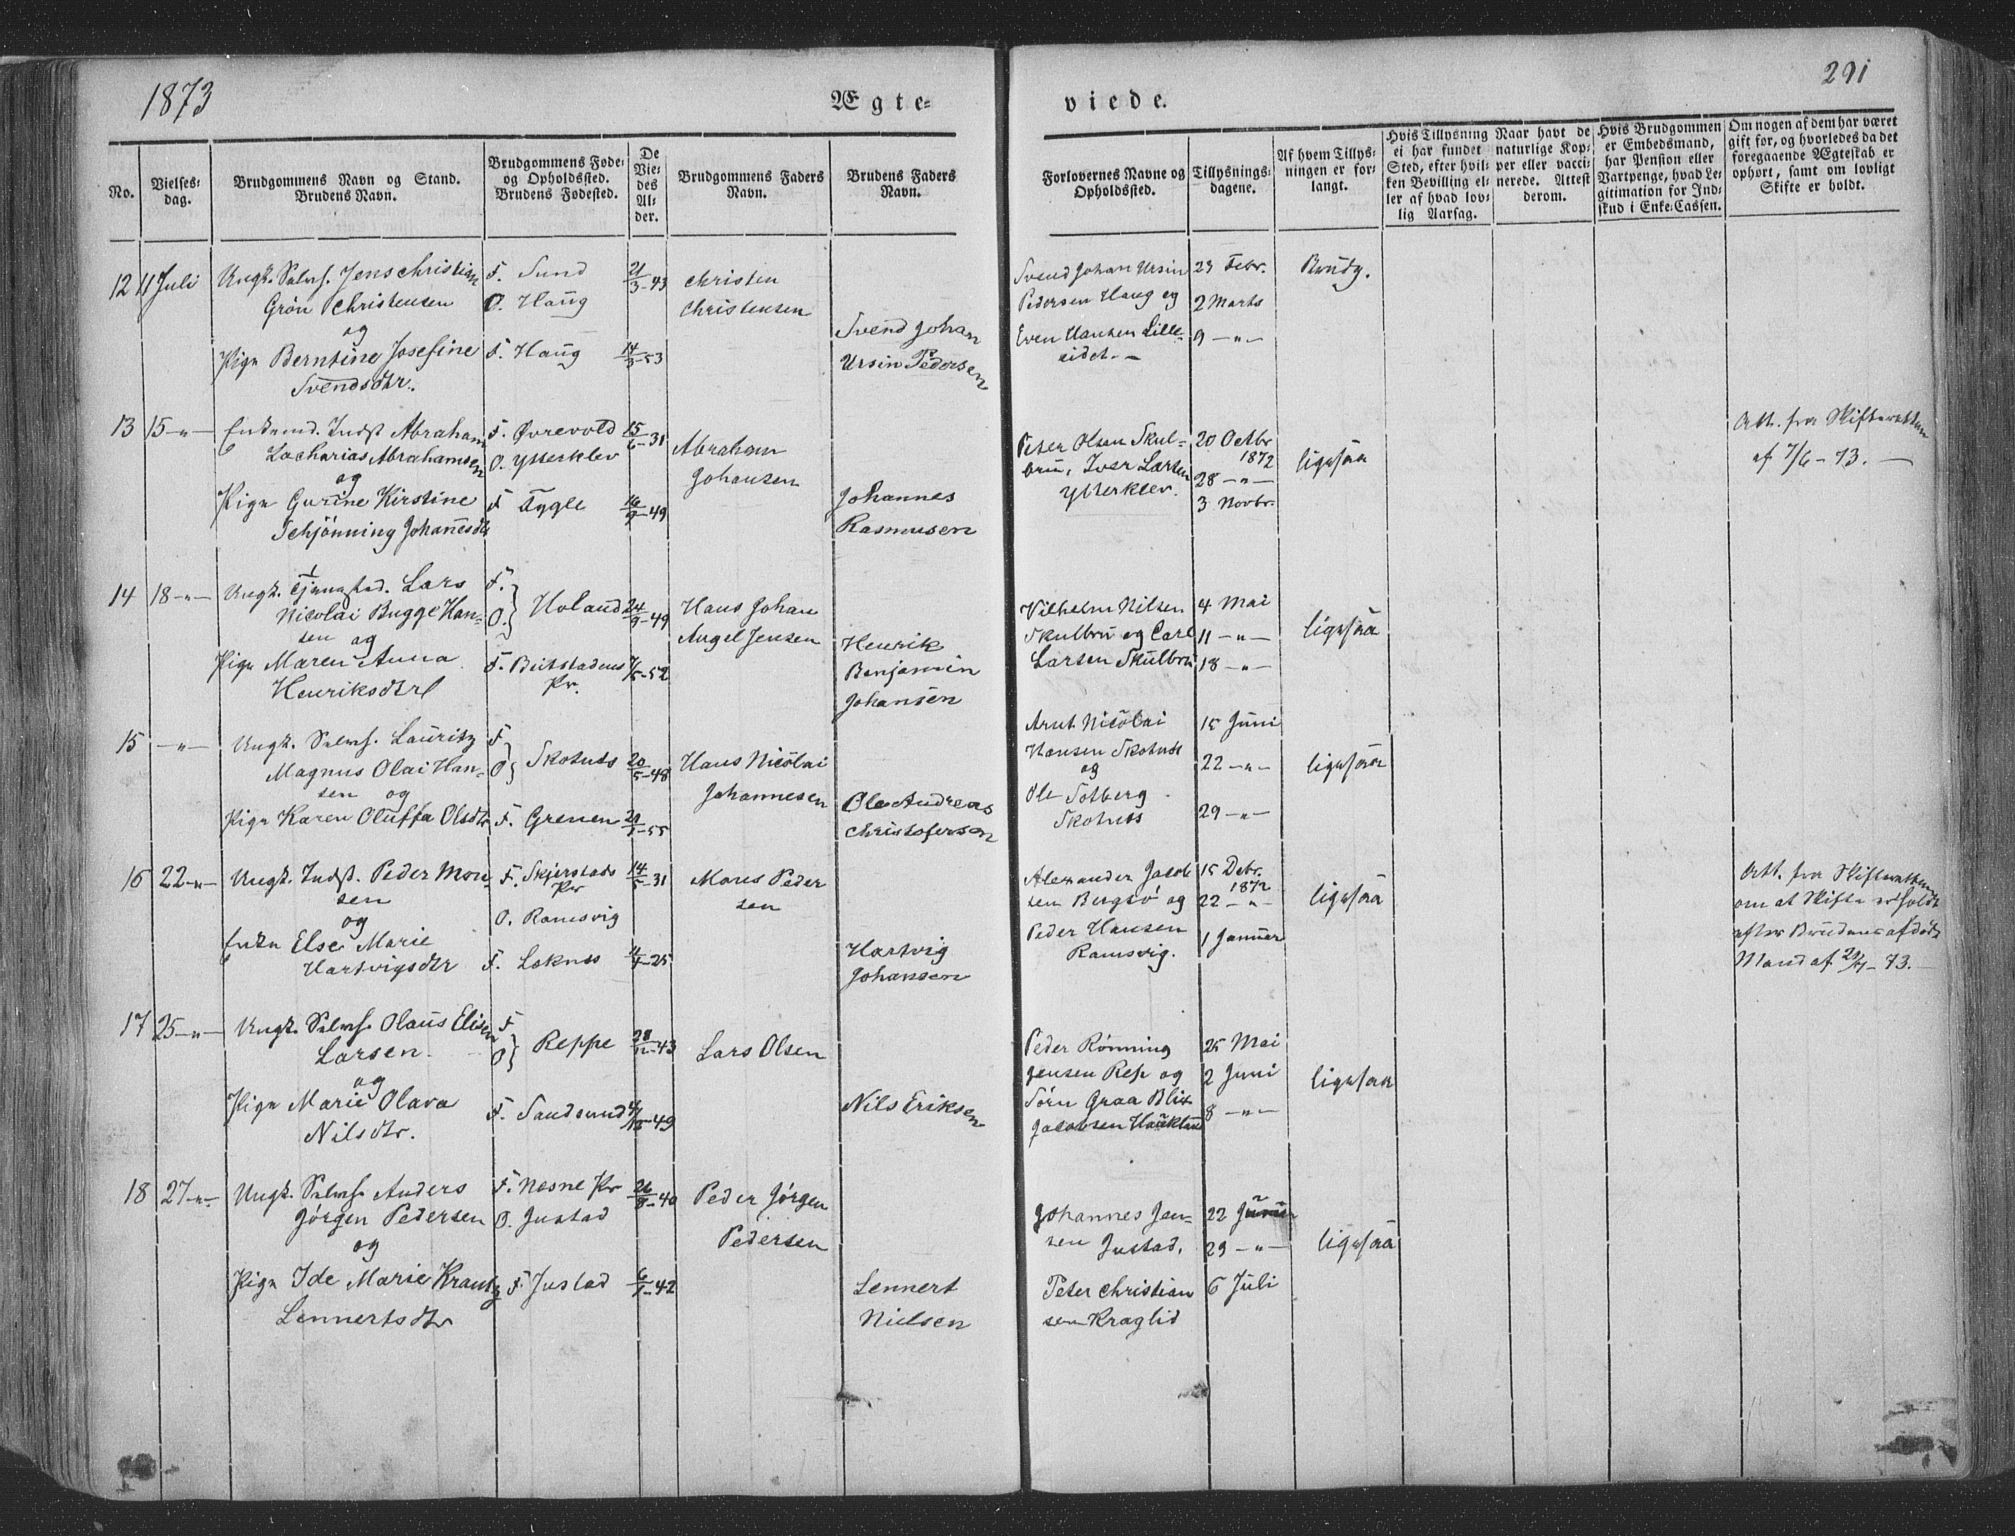 1873
Ægte-
viede.
291
No.
Vielses-
dag.
Brudgommens Navn og Stand.
Brudens Navn.
Brudgommens Føde-
og Opholdssted.
Brudens Fødested.
De
Vie-
des
Al-
der.
Brudgommens Faders
Navn.
Brudens Faders
Navn.
Forlovernes Navne og
Opholdssted.
Tillysnings-
dagene.
Af hvem Tillys-
ningen er for-
langt.
Hvis Tillysning
ei har fundet
Sted, efter hvil-
ken Bevilling el-
ler af hvad lov-
lig Aarsag.
Naar havt de
naturlige Kop-
per eller vacci-
nerede. Attest
derom.
Hvis Brudgommen
er Embedsmand,
har Pension eller
Vartpenge, hvad Le-
gitimation for Ind-
skud i Enke-Cassen.
Om nogen af dem har været
gift før, og hvorledes da det
foregaaende Ægteskab er
ophørt, samt om lovligt
Skifte er holdt.
12 11 Juli
Ungk. Selvf. Jens Christian
Grön Christensen
og
Pige Berntine Josefine
Svendsdtr.
F. Sund
O. Haug
F. Haug
21/3-43
14/3-53
Christen
Christensen
Svend Johan
Ursin Pedersen
Svend Johan Ursin
Pedersen Haug og
Even Hansen Lille-
eidet.
23 Febr.
2 Marts
9 -"-
Brudg.
13 15 -"-
Enkemd. Indst Abraham
Zacharias Abrahamsen
og
Pige Gurine Kirstine
Schjönning Johanesdtr
F. Øvrevold
O. Ytterklev
F Tygle
15/6-31
16/9-49
Abraham
Johansen
Johannes
Rasmusen
Peter Olsen Skul-
bru, Iver Larsen
Ytterklev.
20 Octbr
1872
28 -"-
3 Novbr.
ligesaa
Att. fra Skifteretten
af 7/6-73.
14 18 -"-
Ungk. Lars
Nicolai Bugge Han-
sen og
Pige Maren Anna
Henriksdtr
F.
O. } Holand
F. Beitstadens
Pr.
24/9-49
7/5-52
Hans Johan
Angel Jensen
Henrik
Benjamin
Johansen
Vilhelm Nilsen
Skulbru og Carl
Larsen Skulbru
4 Mai
11 -"-
18 -"-
ligesaa
15 -"-
Ungk. Selvf. Lauritz
Magnus Olai Han-
sen og
Pige Karen Oluffa Olsdtr
F
O } Skotnes
F. Grenen
20/5-48
Hans Nicolai
Johannesen
Ole Andreas
Christofersen
Arnt Nicolai
Hansen Skotnes
og
Ole Solberg
Skotnes
15 Juni
22 -"-
29 -"-
ligesaa
16 22 -"-
Ungk. Indst. Peder Mon-
sen
og
Enke Else Marie
Hartvigsdtr
F. Skjerstads
Pr
O. Ramsvig
F. Leknes
14/5-31
Mons Peder
sen
Hartvig
Johansen
Alexander Jacob
sen Bergsö og
Peder Hansen
Ramsvig.
15 Debr.
1872
22 -"-
1 Januar
ligesaa
Att. fra Skifteretten
om at Skifte er holdt
efter Brudens afdöde
Mand af -73.
17 25 -"-
Ungk. Selvf. Olaus Elisen
Larsen.
og
Pige Marie Olava
Nilsdtr.
F
O } Reppe
F. Sandsund
28/12-43
Lars Olsen
Nils Eriksen
Peder Rönning
Jensen Rep og
Sörn Graa Blix
Jacobsen
25 Mai
2 Juni
8 -"-
ligesaa
18 27 -"-
Ungk. Selvf. Anders
Jörgen Pedersen
og
Pige Ide Marie Krantz
Lennertsdtr
F. Nesne Pr
O. Justad
F. Justad
26/8-40
Peder Jörgen
Pedersen
Lennert
Nielsen
Johannes Jen-
sen Justad,
Peter Christian
sen Kraglid
22 Juni
29 -"-
6 Juli
ligesaa